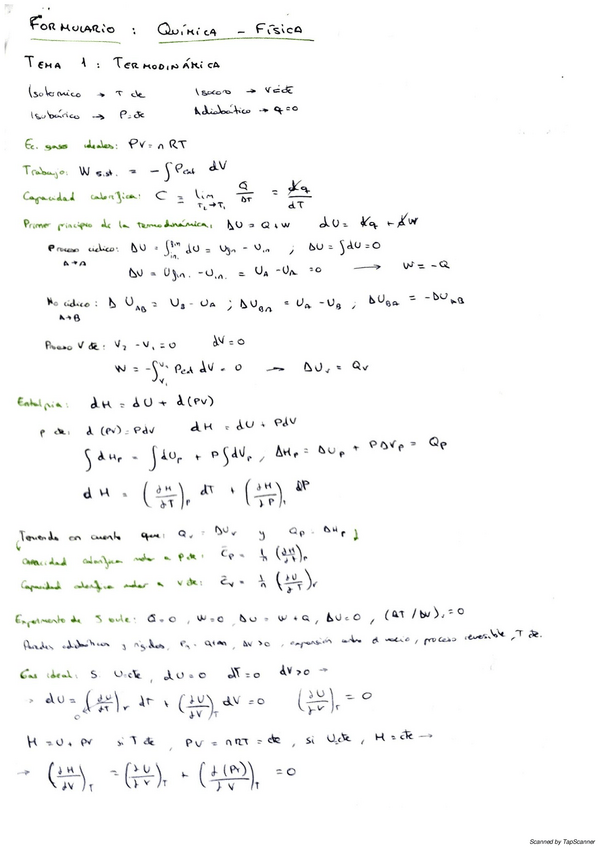 FORMULARIO : QUÍMICA - FÍSICA
TEMA 1 : TERMODINÁMICA
Isotermico → T cte Isocoro → V=cte
Isobárico → P=cte Adiabático → q=0
Ec. gases ideales: PV = nRT
Trabajo: W s.st. = -∫ Pext dV
Capacidad calorífica: C = lim T₂→T₁ Q/ΔT = đq/dT
Primer principio de la termodinámica: ΔU = Q + W dU = đq + đW
Proceso cíclico: ΔU = ∫ᵢₙ.^fin dU = Ufin - Uin ; ΔU = ∫dU = 0
A→A ΔU = Ufin. - Uin. = UA - UA = 0 → W = -Q
No cíclico: Δ UAB = UB - UA ; ΔUBA = UA - UB ; ΔUBA = -ΔUAB
A→B
Proceso V cte: V₂ - V₁ = 0 dV = 0
W = -∫V₁^V₂ Pext dV = 0 → ΔUv = Qv
Entalpia: dH = dU + d(PV)
P cte: d(PV) = PdV dH = dU + PdV
∫dHp = ∫dUp + P∫dVp, ΔHp = ΔUp + PΔVp = Qp
dH = (∂H/∂T)p dT + (∂H/∂P)T dP
Teniendo en cuenta que: Qv = ΔUv y Qp = ΔHp
Capacidad calorífica molar a P cte: C̄p = 1/n (∂H/∂T)p
Capacidad calorífica molar a V cte: C̄v = 1/n (∂U/∂T)v
Experimento de Joule: Q=0, W=0, ΔU = W+Q, ΔU=0, (ΔT/ΔV)ᵤ=0
Paredes adiabáticas y rígidas, ΔV>0, expansión contra el vacío, proceso irreversible, T cte.
Gas ideal: Si U cte, dU=0 dT=0 dV>0 →
→ dU = (∂U/∂T)v dT + (∂U/∂V)T dV = 0 (∂U/∂V)T = 0
H = U + PV si T cte, PV = nRT = cte, si U cte, H = cte →
→ (∂H/∂V)T = (∂U/∂V)T + (∂(PV)/∂V)T = 0
Scanned by TapScanner